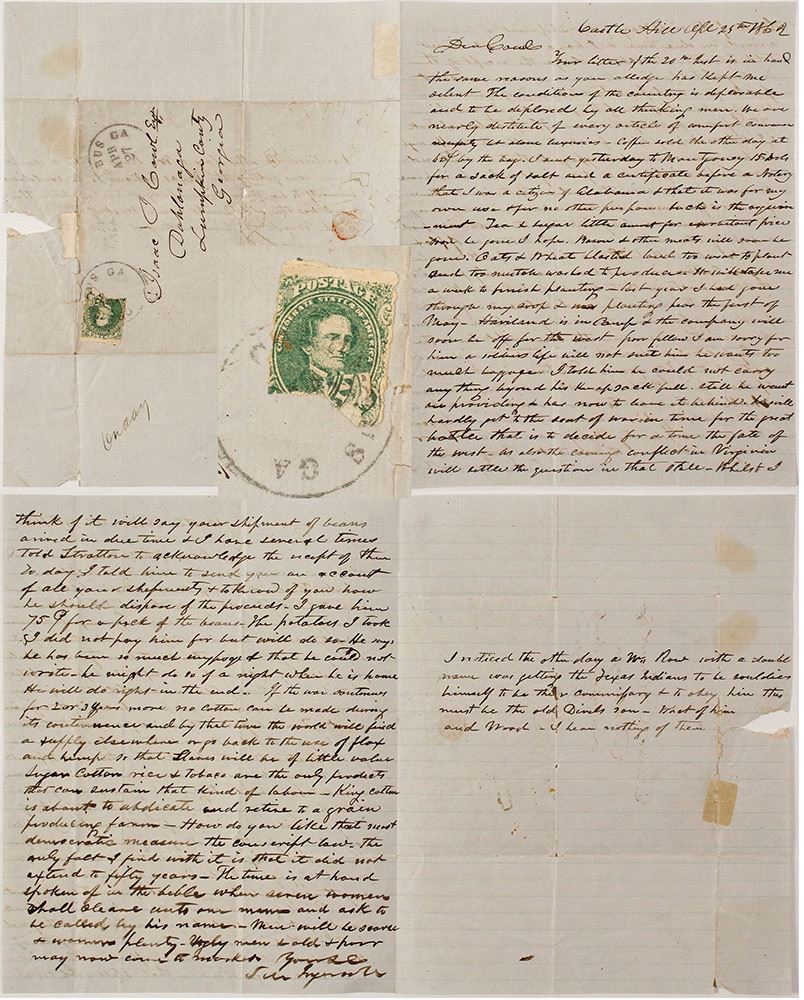 BUS GA
APR
27
Isaac Head Esqr
Dahlonega
Lumpkin County
Georgia
US GA
POSTAGE
CONFEDERATE STATES OF AMERICA
GA
Castle Hill Apl 25th 1862
Dear
Your letter of the 20th inst is in hand
the same reasons as you alledge has kept me
silent The condition of the country is deplorable
and to be deplored by all thinking men. We are
nearly destitute of every article of comfort common
let alone luxuries - Coffee sold the other day at
by the bag. I sent yesterday to Montgomery 15 dols
for a sack of salt and a certificate before a Notary
that I was a citizen of Alabama & that it was for my
own use & for no other purpose such is the
Tea & sugar little except for exorbitant price
be gone I hope. Bacon & other meats will soon be
gone. Oats & Wheat blasted land too wet to plant
and too much washed to produce. It will take me
a week to finish planting - last year I had gone
through my crop & planting pear the first of
May - Haviland is in Camp & the company will
soon be off for the west poor fellow I am sorry for
him a soldiers life will not suit him he wants too
much baggage. I told him he could not carry
any thing beyond his knapsack full. still he went
on providing & has now to leave it behind. he will
hardly get to the seat of war in time for the great
battle that is to decide for a time the fate of
the west - as also the coming conflict in Virginia
will settle the question in that State - Whilst I
think of it will say your shipment of beans
arrived in due time & I have several times
told Stratton to acknowledge the receipt of them
To day I told him to send you an account
of all your shipments & to know of you how
he should dispose of the proceeds - I gave him
75 for a peck of the beans - The potatoes I took
& I did not pay him for but will do so - He says
he has been so much engaged & that he could not
wrote - he might do so of a night when he is home
He will do right in the end - If the war continues
for 2 or 3 years more no cotton can be made during
its continuence and by that time the world will find
a supply elsewhere or go back to the use of flax
and hemp so that Slaves will be of little value
Sugar Cotton rice & tobaco are the only products
that can sustain that kind of labour - King cotton
is about to abdicate and retire to a grain
producing farm - How do you like that most
democratic measure the conscript law - the
only falt I find with it is that it did not
extend to fifty years - The time is at hand
spoken of in the bible when seven women
shall cleave unto one man and ask to
be called by his name - Men will be scarce
& women plenty - Ugly men & old & poor
may now come to market Yours &c
I noticed the other day a Wm Row with a double
name was getting the Texas Indians to be souldiers
himself to be their commissary & to obey him this
must be the old Divels son - What of him
and Wood - I hear nothing of them